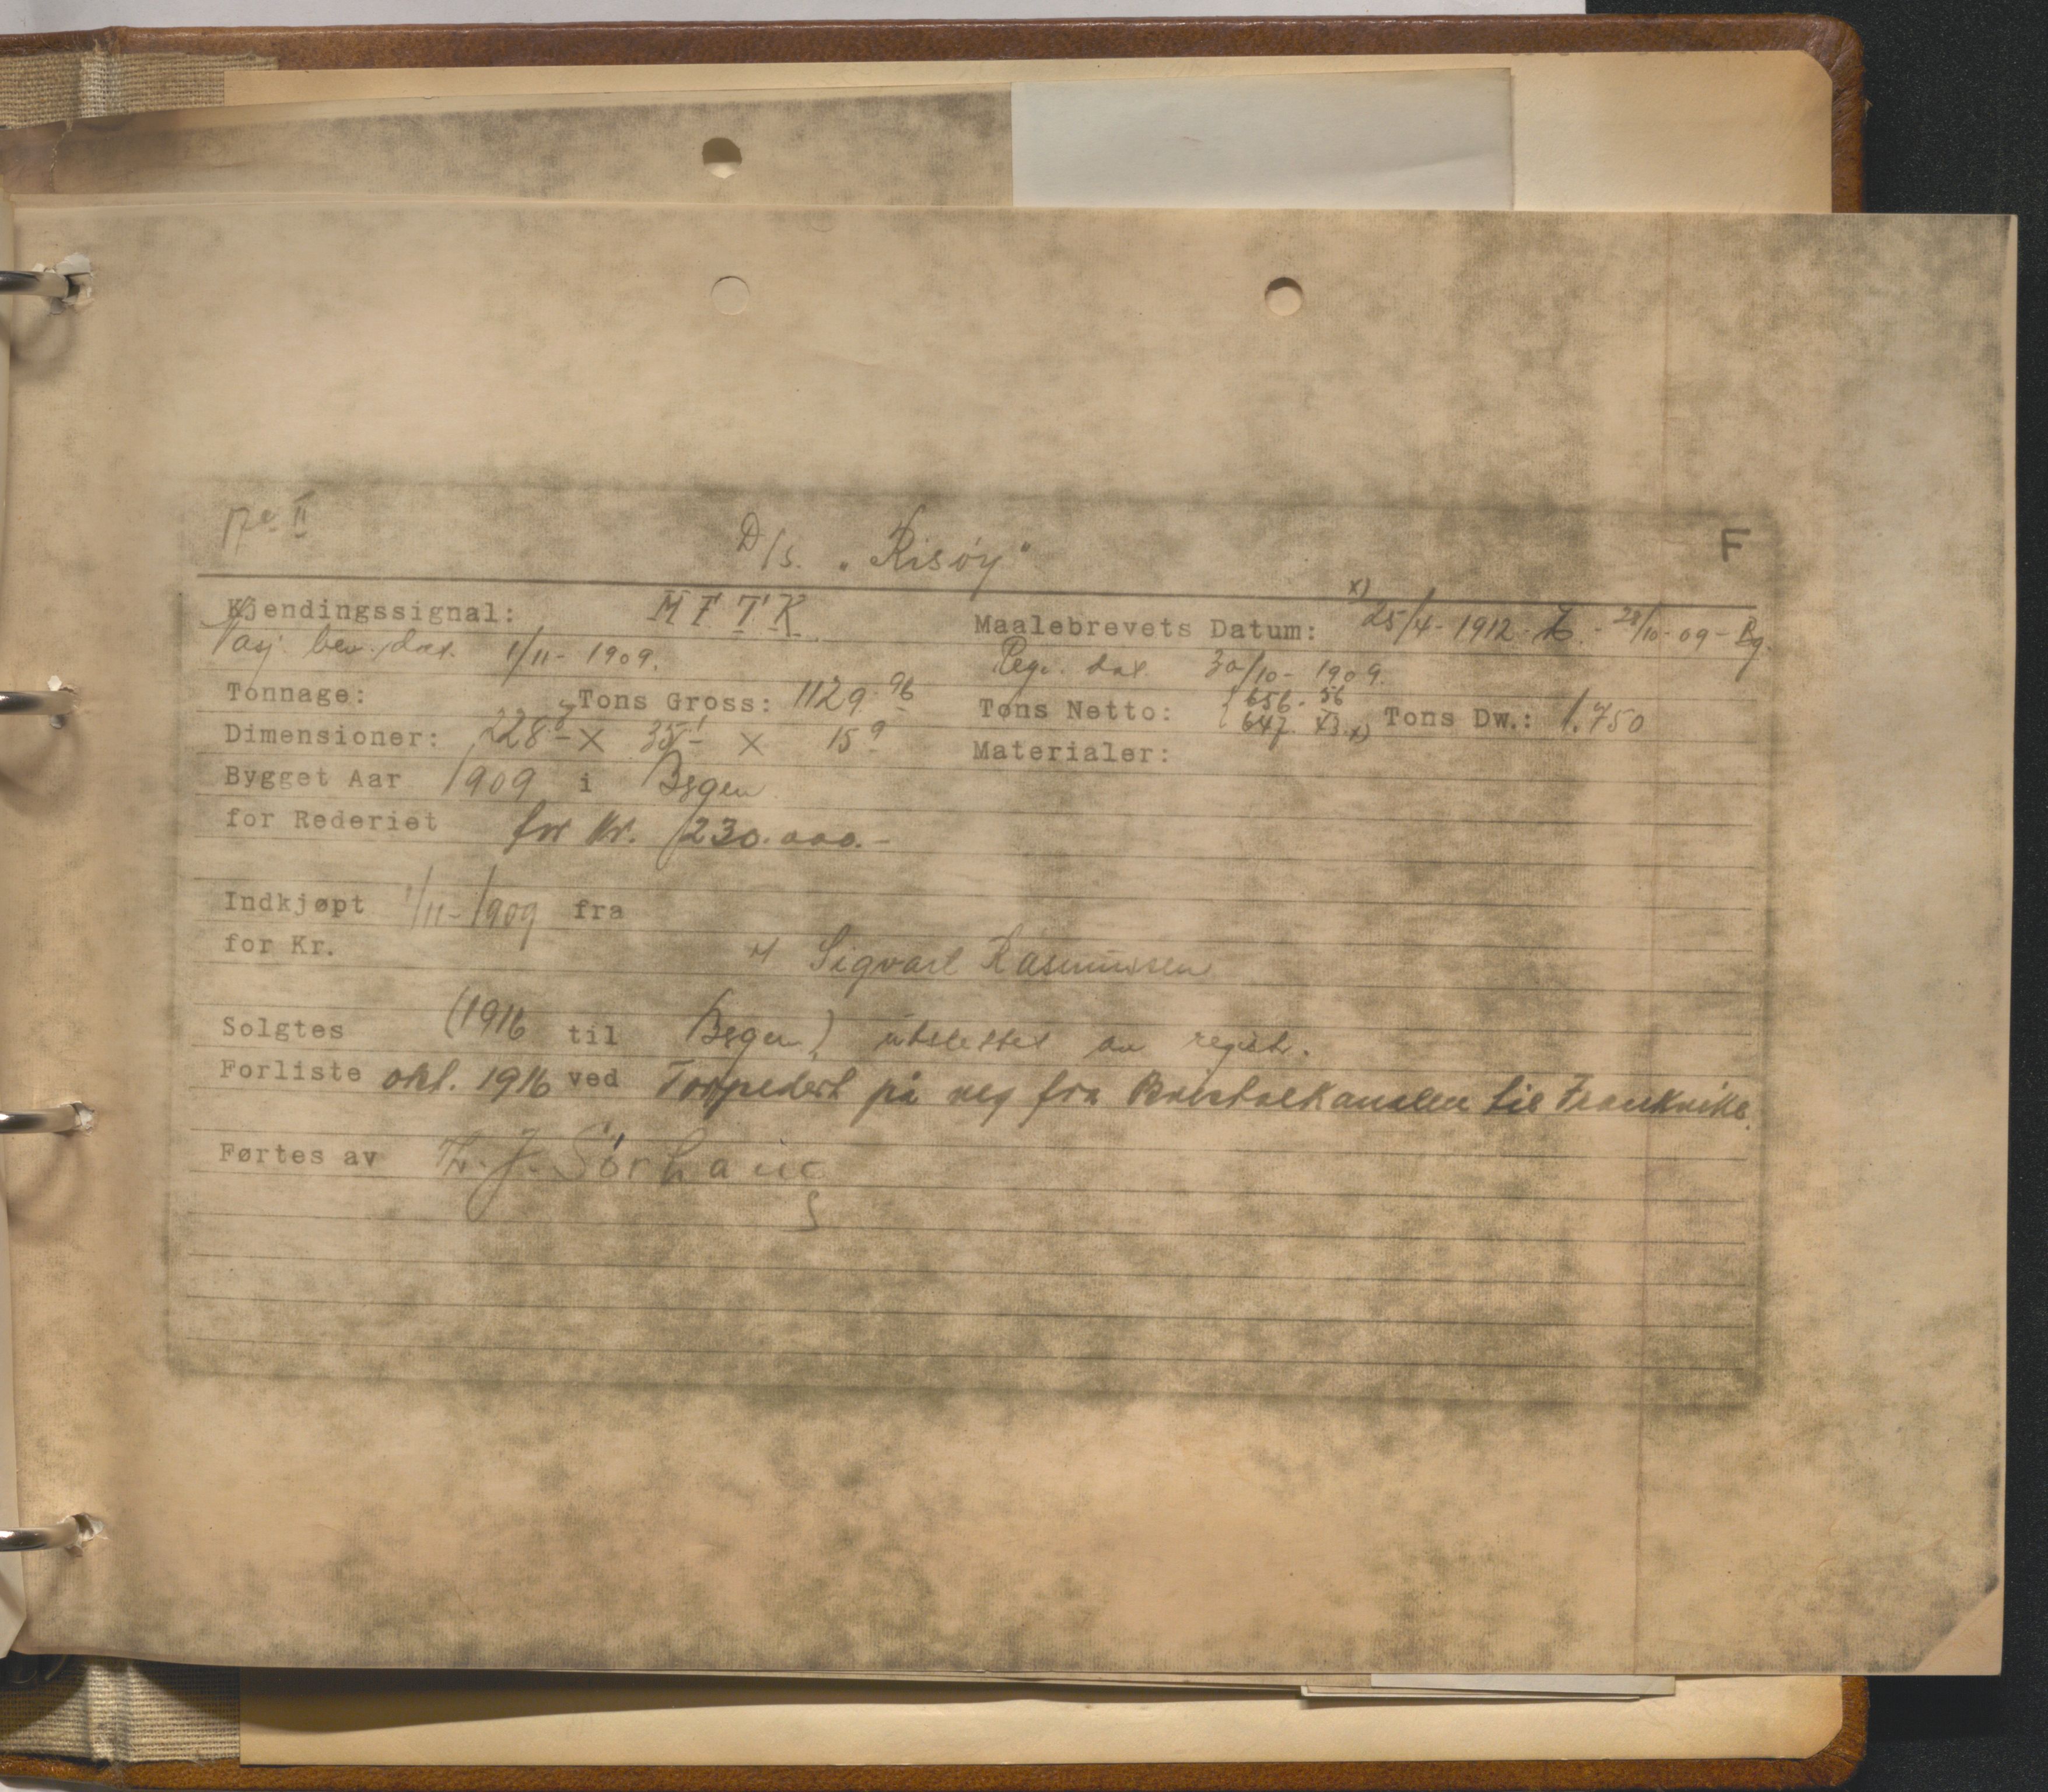 No II
D/S. „Risøy" F
Kjendingssignal: M F T K Maalebrevets Datum: x) 25/4-1912. - 28/10-09-Bg.
Nasj. bev. dat. 1/11-1909. Reg. dat 30/10-1909.
Tonnage: Tons Gross: 1129.96 Tons Netto: {656.56 Tons Dw.: 1.750
647. x)
Dimensioner: 228 x 35 x 15 9 Materialer:
Bygget Aar 1909 i Bgen
for Rederiet for kr. 230.000.-
Indkjøpt 1/11-1909 fra
for Kr. Sigvart Rasmussen
Solgtes (1916 til Bgen) utslettet av regist.
Forliste okt. 1916 ved Torpedert på veg fra Bristolkanalen til Frankrike.
Førtes av Th. J. Sørhaug